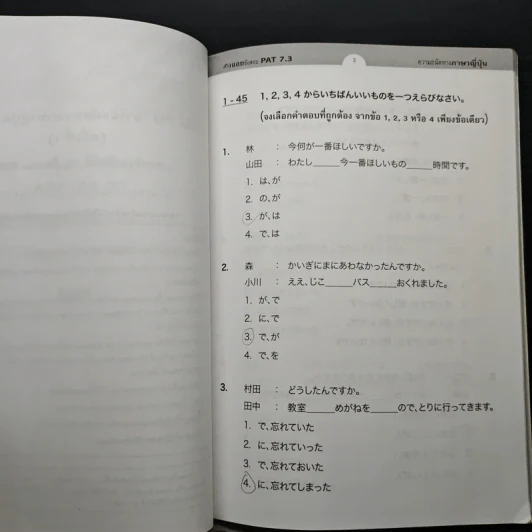 PAT 7.3
3
ความถนัดทางภาษาญี่ปุ่น
1 - 45 1, 2, 3, 4 からいちばんいいものを一つえらびなさい。
(จงเลือกคำตอบที่ถูกต้อง จากข้อ 1, 2, 3 หรือ 4 เพียงข้อเดียว)
1. 林 : 今何が一番ほしいですか。
山田 : わたし______今一番ほしいもの______時間です。
1. は、が
2. の、が
3. が、は
4. で、は
2. 森 : かいぎにまにあわなかったんですか。
小川 : ええ、じこ______バス______おくれました。
1. が、で
2. に、で
3. で、が
4. で、を
3. 村田 : どうしたんですか。
田中 : 教室______めがねを______ので、とりに行ってきます。
1. で、忘れていた
2. に、忘れていった
3. で、忘れておいた
4. に、忘れてしまった